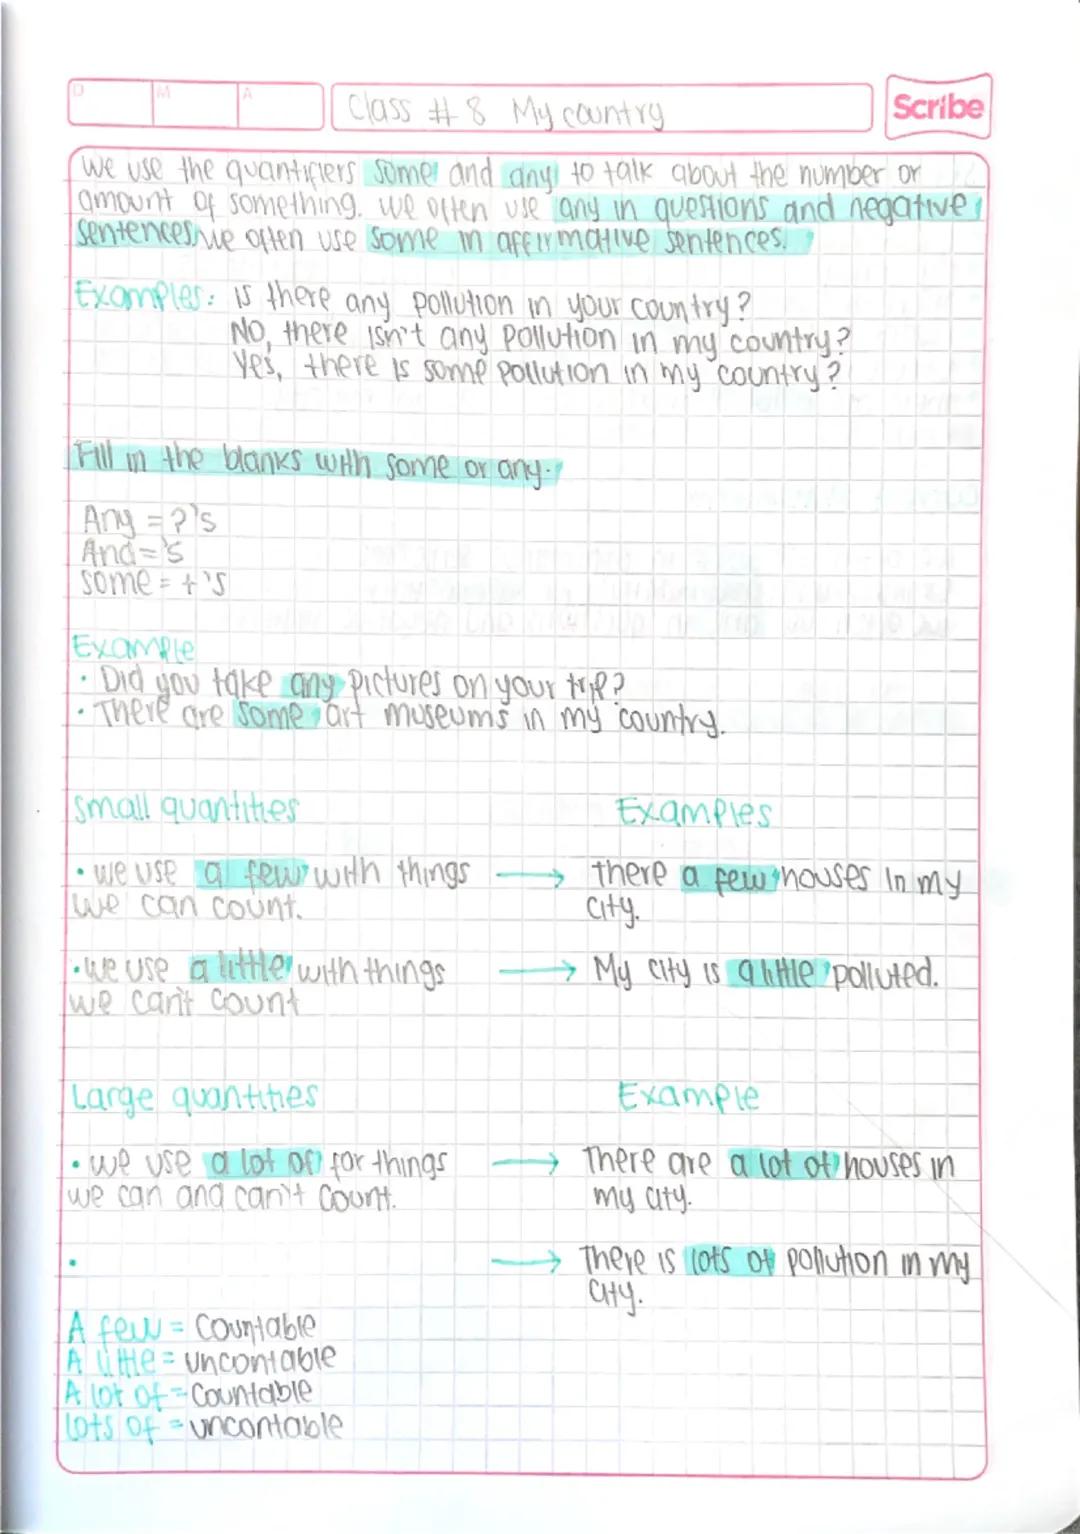 D M A
Class # 8 My country
Scribe
We use the quantifiers some and any to talk about the number or
amount of something. We often use any in questions and negative
sentences, we often use some in affirmative sentences.
Examples: is there any pollution in your country?
No, there isn't any pollution in my country?
Yes, there is some pollution in my country?
Fill in the blanks with some or any.
Any = ?'s
And='s
some = + 's
Example
• Did you take any pictures on your trip?
• There are some art museums in my country.
Small quantities
Examples
• we use a few with things → there a few houses in my
we can count. city.
• we use a little with things → My city is a little polluted.
we can't count
Large quantities
Example
• we use a lot of for things → There are a lot of houses in
we can and can't count. my city.
• → There is lots of pollution in my
city.
A few = Countable
A little = uncontable
A lot of = Countable
lots of = uncontable